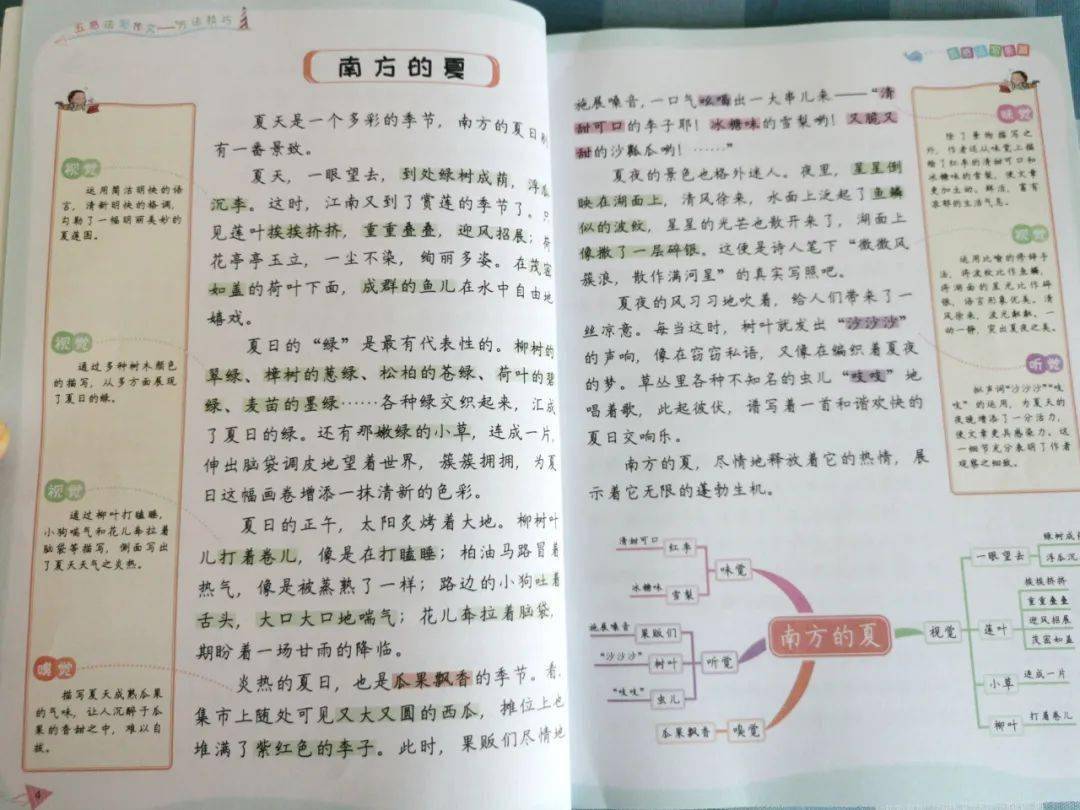 五感法写作文——方法技巧
南方的夏
视觉
运用简洁明快的语
言，清新明快的格调，
勾勒了一幅明丽美妙的
夏莲图。
视觉
通过多种树木颜色
的描写，从多方面展现
了夏日的绿。
视觉
通过柳叶打瞌睡，
小狗喘气和花儿奔拉着
脑袋等描写，侧面写出
了夏天天气之炎热。
嗅觉
描写夏天成熟瓜果
的气味，让人沉醉于瓜
果的香甜之中，难以自
拔。
4
夏天是一个多彩的季节，南方的夏日别
有一番景致。
夏天，一眼望去，到处绿树成荫，浮瓜
沉李。这时，江南又到了赏莲的季节了。只
见莲叶挨挨挤挤，重重叠叠，迎风招展；荷
花亭亭玉立，一尘不染，绚丽多姿。在茂密
如盖的荷叶下面，成群的鱼儿在水中自由地
嬉戏。
夏日的“绿”是最有代表性的。柳树的
翠绿、樟树的葱绿、松柏的苍绿、荷叶的碧
绿、麦苗的墨绿……各种绿交织起来，汇成
了夏日的绿。还有那嫩绿的小草，连成一片，
伸出脑袋调皮地望着世界，簇簇拥拥，为夏
日这幅画卷增添一抹清新的色彩。
夏日的正午，太阳炙烤着大地。柳树叶
儿打着卷儿，像是在打瞌睡；柏油马路冒着
热气，像是被蒸熟了一样；路边的小狗吐着
舌头，大口大口地喘气；花儿奔拉着脑袋，
期盼着一场甘雨的降临。
炎热的夏日，也是瓜果飘香的季节。看，
集市上随处可见又大又圆的西瓜，摊位上也
堆满了紫红色的李子。此时，果贩们尽情地
施展嗓音，一口气吆喝出一大串儿来——“清
甜可口的李子耶！冰糖味的雪梨哟！又脆又
甜的沙瓤瓜哟！……”
夏夜的景色也格外迷人。夜里，星星倒
映在湖面上，清风徐来，水面上泛起了鱼鳞
似的波纹，星星的光芒也散开来了，湖面上
像撒了一层碎银。这便是诗人笔下“微微风
簇浪，散作满河星”的真实写照吧。
夏夜的风习习地吹着，给人们带来了一
丝凉意。每当这时，树叶就发出“沙沙沙”
的声响，像在窃窃私语，又像在编织着夏夜
的梦。草丛里各种不知名的虫儿“吱吱”地
唱着歌，此起彼伏，谱写着一首和谐欢快的
夏日交响乐。
南方的夏，尽情地释放着它的热情，展
示着它无限的蓬勃生机。
味觉
除了景物描写之
外，作者还从味觉上描
绘了红李的清甜可口和
冰糖味的雪梨，使文章
更加生动、鲜活，富有
浓郁的生活气息。
视觉
运用比喻的修辞手
法，将波纹比作鱼鳞，
将湖面的星光比作碎
银，语言形象优美。清
风徐来，波光粼粼，一
动一静，突出夏夜之美。
听觉
拟声词“沙沙沙”“吱
吱”的运用，为夏天的
夜晚增添了一分活力，
使文章更具感染力。这
一细节充分表明了作者
观察之细致。
清甜可口
红李
冰糖味
雪梨
味觉
施展嗓音
果贩们
“沙沙沙”
树叶
“吱吱”
虫儿
听觉
瓜果飘香
嗅觉
南方的夏
视觉
一眼望去
绿树成
浮瓜沉
莲叶
挨挨挤挤
重重叠叠
迎风招展
茂密如盖
小草
连成一片
柳叶
打着卷儿